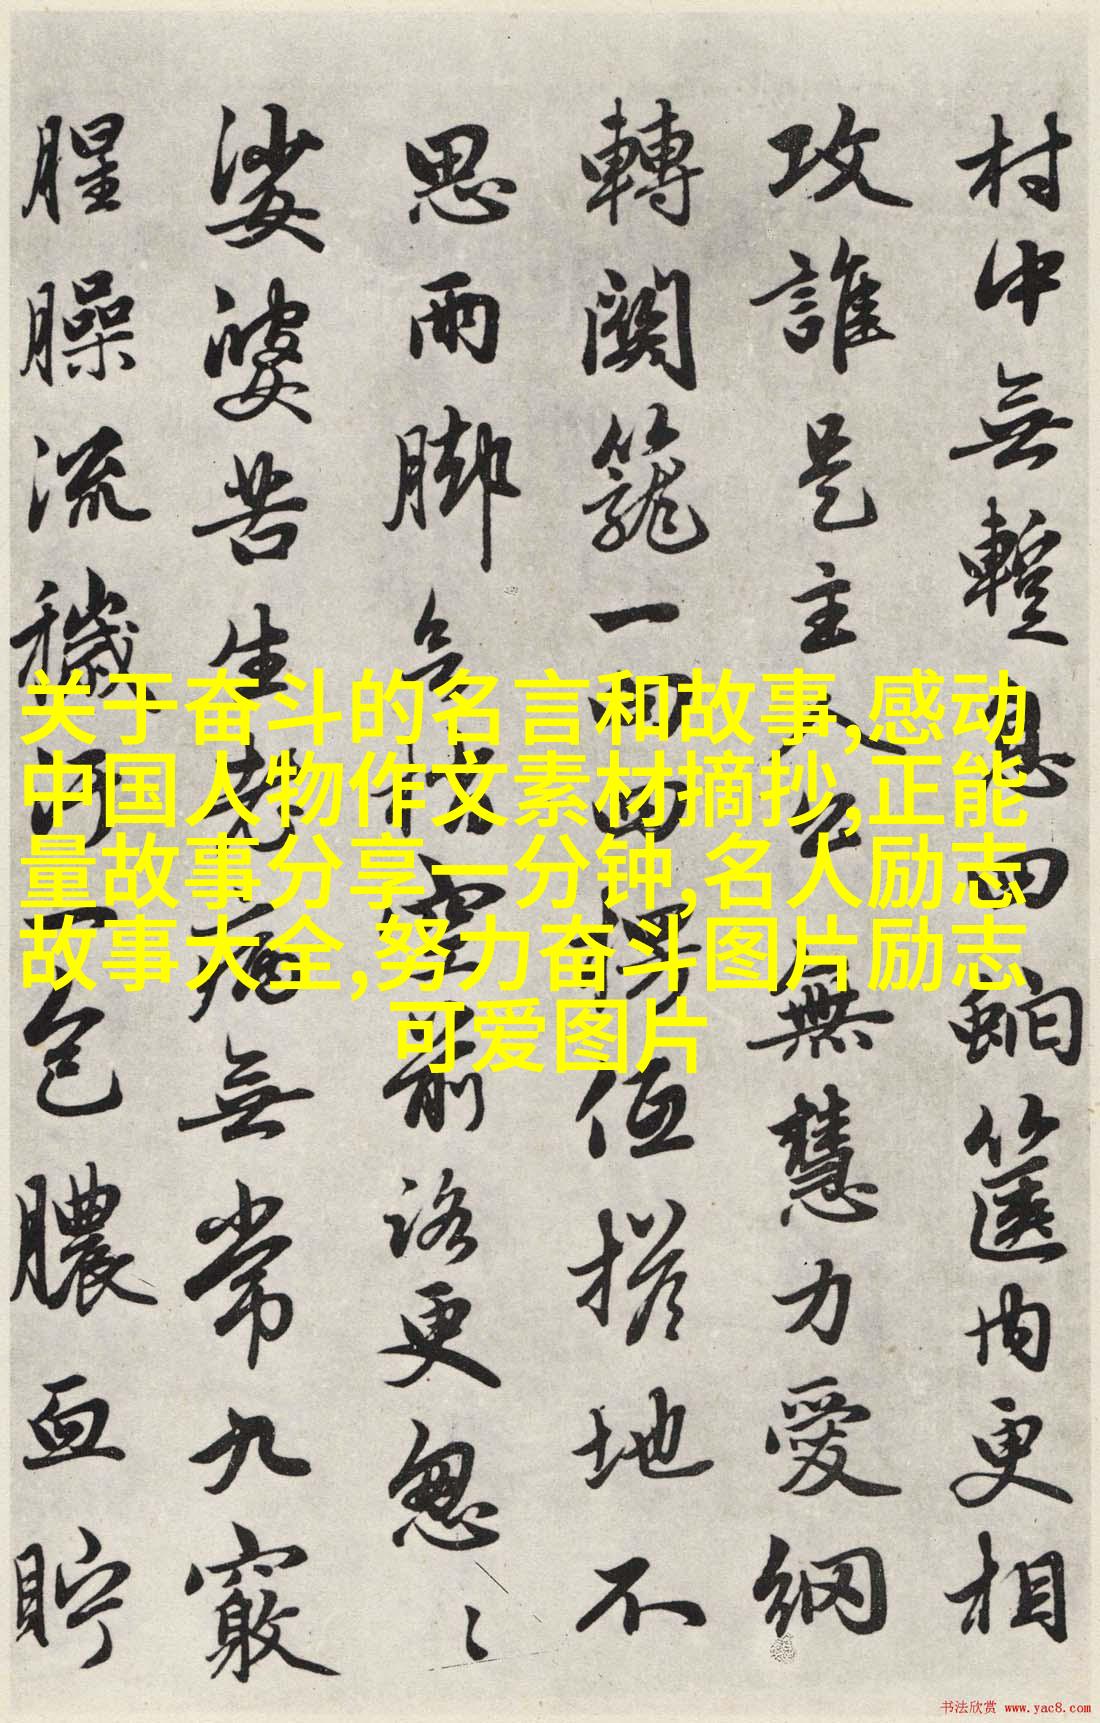 村中無蹔息四蛇篋内更相
攻誰是主人公無慧力愛網
轉関籠一回回伍地不
思兩脚空前路更忽〻
娑婆苦生老病無常九竅
腥臊流穢污一包膿血貯
关于奋斗的名言和故事,感动
中国人物作文素材摘抄,正能
量故事分享一分钟,名人励志
故事大全,努力奋斗图片励志
可爱图片
书法欣赏 www.yac8.com